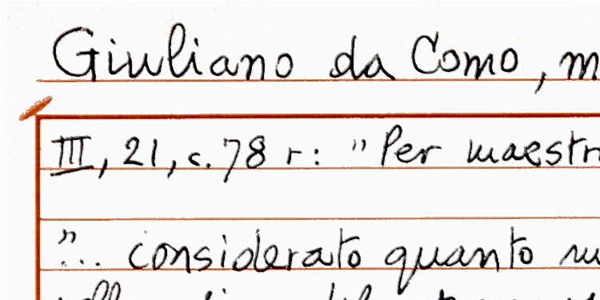 Giuliano da Como, m
III, 21, c. 78 r: "Per maestr
"... considerato quanto